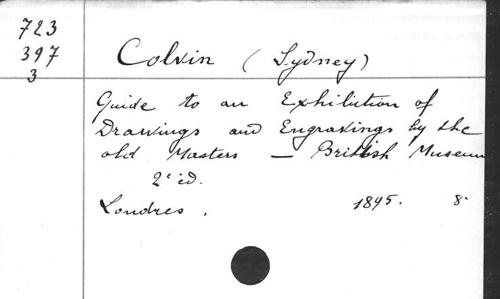 723
397
3
Colvin (Sydney)
Guide to an Exhibition of
Drawings and Engravings by the
old Masters — British Museum
2e éd.
Londres. 1895. 8°